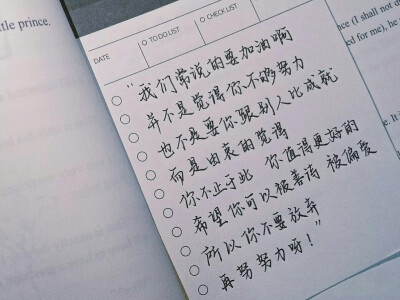 ttle prince.
DATE
TO DO LIST
CHECK LIST
nce (I shall not
ed for me), he
“我们常说的要加油啊
并不是觉得你不够努力
也不是要你跟别人比成就
而是由衷的觉得
你不止于此 你值得更好的
希望你可以被善待 被偏爱
所以你不要放弃
再努努力呀！”